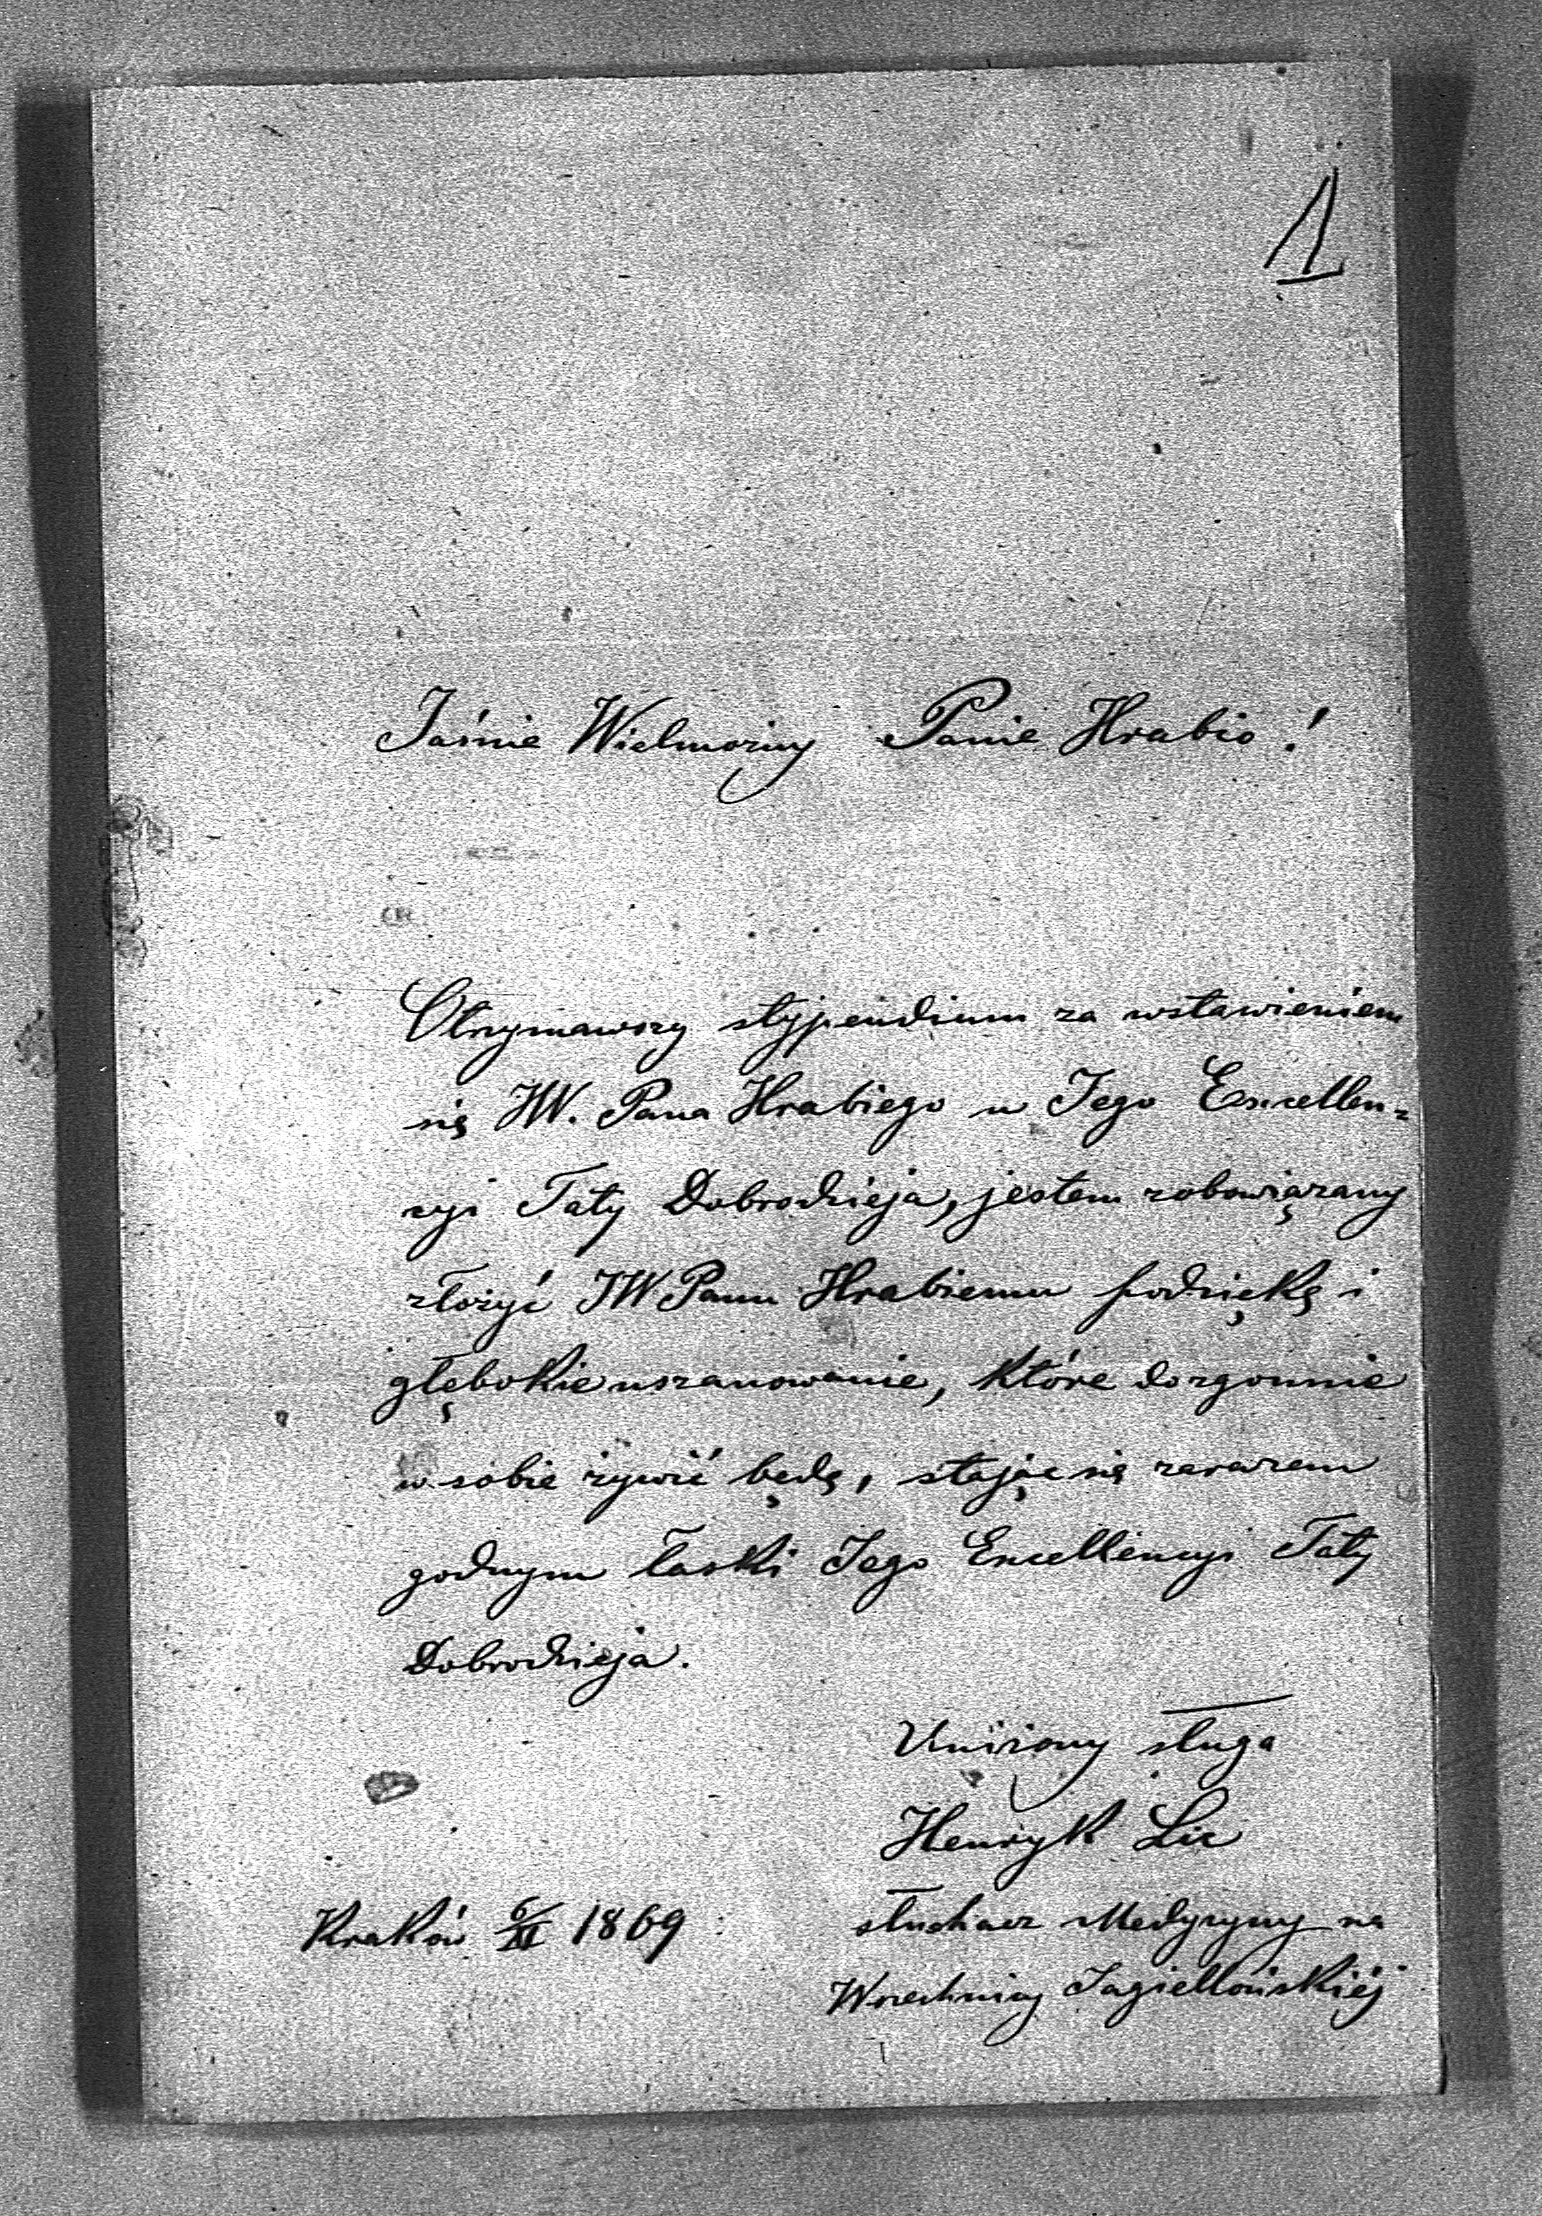 1
Jaśnie Wielmożny Panie Hrabio!
Otrzymawszy stypendium za wstawieniem
się JW. Pana Hrabiego u Jego Excellen=
cyi Taty Dobrodzieja, jestem zobowiązany
złożyć JW Panu Hrabiemu podziękę i
głębokie uszanowanie, które dozgonnie
w sobie żywić będę, stając się zarazem
godnym łaski Jego Excellencyi Taty
Dobrodzieja.
Uniżony sługa
Henryk Lic
Kraków 6/XI 1869
słuchacz Medycyny na
Wszechnicy Jagiellońskiéj